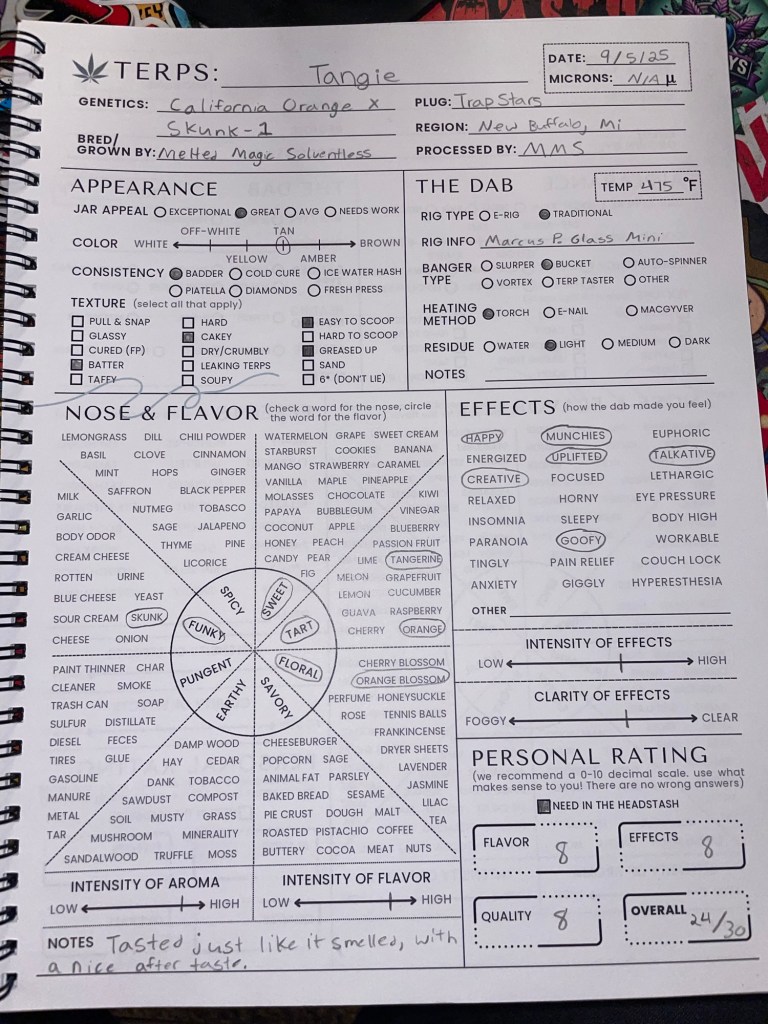 TERPS: Tangie
DATE: 9/5/25
MICRONS: N/A µ
GENETICS: California Orange x
Skunk-1
BRED/
GROWN BY: Melted Magic Solventless
PLUG: Trap Stars
REGION: New Buffalo, Mi
PROCESSED BY: MMS
APPEARANCE
JAR APPEAL EXCEPTIONAL GREAT AVG NEEDS WORK
OFF-WHITE TAN
COLOR WHITE BROWN
YELLOW AMBER
CONSISTENCY BADDER COLD CURE ICE WATER HASH
PIATELLA DIAMONDS FRESH PRESS
TEXTURE (select all that apply)
PULL & SNAP HARD EASY TO SCOOP
GLASSY CAKEY HARD TO SCOOP
CURED (FP) DRY/CRUMBLY GREASED UP
BATTER LEAKING TERPS SAND
TAFFY SOUPY 6* (DON'T LIE)
THE DAB
TEMP 475 °F
RIG TYPE E-RIG TRADITIONAL
RIG INFO Marcus P. Glass Mini
BANGER SLURPER BUCKET AUTO-SPINNER
TYPE VORTEX TERP TASTER OTHER
HEATING
METHOD TORCH E-NAIL MACGYVER
RESIDUE WATER LIGHT MEDIUM DARK
NOTES
NOSE & FLAVOR (check a word for the nose, circle
the word for the flavor)
LEMONGRASS DILL CHILI POWDER
BASIL CLOVE CINNAMON
MINT HOPS GINGER
SAFFRON BLACK PEPPER
NUTMEG TOBASCO
SAGE JALAPENO
THYME PINE
LICORICE
SPICY
WATERMELON GRAPE SWEET CREAM
STARBURST COOKIES BANANA
MANGO STRAWBERRY CARAMEL
VANILLA MAPLE PINEAPPLE
MOLASSES CHOCOLATE
PAPAYA BUBBLEGUM
COCONUT APPLE
HONEY PEACH
CANDY PEAR
FIG
SWEET
KIWI
VINEGAR
BLUEBERRY
PASSION FRUIT
LIME TANGERINE
MELON GRAPEFRUIT
LEMON CUCUMBER
GUAVA RASPBERRY
CHERRY ORANGE
TART
MILK
GARLIC
BODY ODOR
CREAM CHEESE
ROTTEN URINE
BLUE CHEESE YEAST
SOUR CREAM SKUNK
CHEESE ONION
FUNKY
PAINT THINNER CHAR
CLEANER SMOKE
TRASH CAN SOAP
SULFUR DISTILLATE
DIESEL FECES
TIRES GLUE
GASOLINE
MANURE
METAL
TAR
PUNGENT
DAMP WOOD
HAY CEDAR
DANK TOBACCO
SAWDUST COMPOST
SOIL MUSTY GRASS
MUSHROOM MINERALITY
SANDALWOOD TRUFFLE MOSS
EARTHY
CHEESEBURGER
POPCORN SAGE
ANIMAL FAT PARSLEY
BAKED BREAD SESAME
PIE CRUST DOUGH MALT
ROASTED PISTACHIO COFFEE
BUTTERY COCOA MEAT NUTS
SAVORY
CHERRY BLOSSOM
ORANGE BLOSSOM
PERFUME HONEYSUCKLE
ROSE TENNIS BALLS
FRANKINCENSE
DRYER SHEETS
LAVENDER
JASMINE
LILAC
TEA
FLORAL
INTENSITY OF AROMA
LOW HIGH
INTENSITY OF FLAVOR
LOW HIGH
NOTES Tasted just like it smelled, with
a nice after taste.
EFFECTS (how the dab made you feel)
HAPPY MUNCHIES EUPHORIC
ENERGIZED UPLIFTED TALKATIVE
CREATIVE FOCUSED LETHARGIC
RELAXED HORNY EYE PRESSURE
INSOMNIA SLEEPY BODY HIGH
PARANOIA GOOFY WORKABLE
TINGLY PAIN RELIEF COUCH LOCK
ANXIETY GIGGLY HYPERESTHESIA
OTHER
INTENSITY OF EFFECTS
LOW HIGH
CLARITY OF EFFECTS
FOGGY CLEAR
PERSONAL RATING
(we recommend a 0-10 decimal scale. use what
makes sense to you! There are no wrong answers)
NEED IN THE HEADSTASH
FLAVOR 8
EFFECTS 8
QUALITY 8
OVERALL 24/30